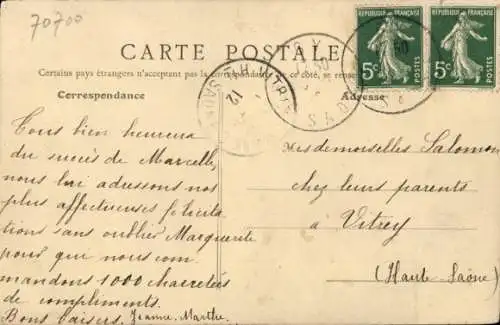 70700
RÉPUBLIQUE FRANÇAISE
RÉPUBLIQUE FRANÇAISE
5c
POSTES
5c
POSTES
CARTE POSTALE
Certains pays étrangers n'acceptent pas la correspondance de ce côté, se
Correspondance
Adresse
12
Tous bien heureux
du succès de Marcelle,
nous lui adressons nos
plus affectueuses félicita
tions sans oublier Marguerite
pour qui nous com
mandons 1000 charretées
de compliments.
Bons baisers, Jeanne-Marthe
Mesdemoiselles Salomon
chez leurs parents
à Vitrey
(Haute-Saône)